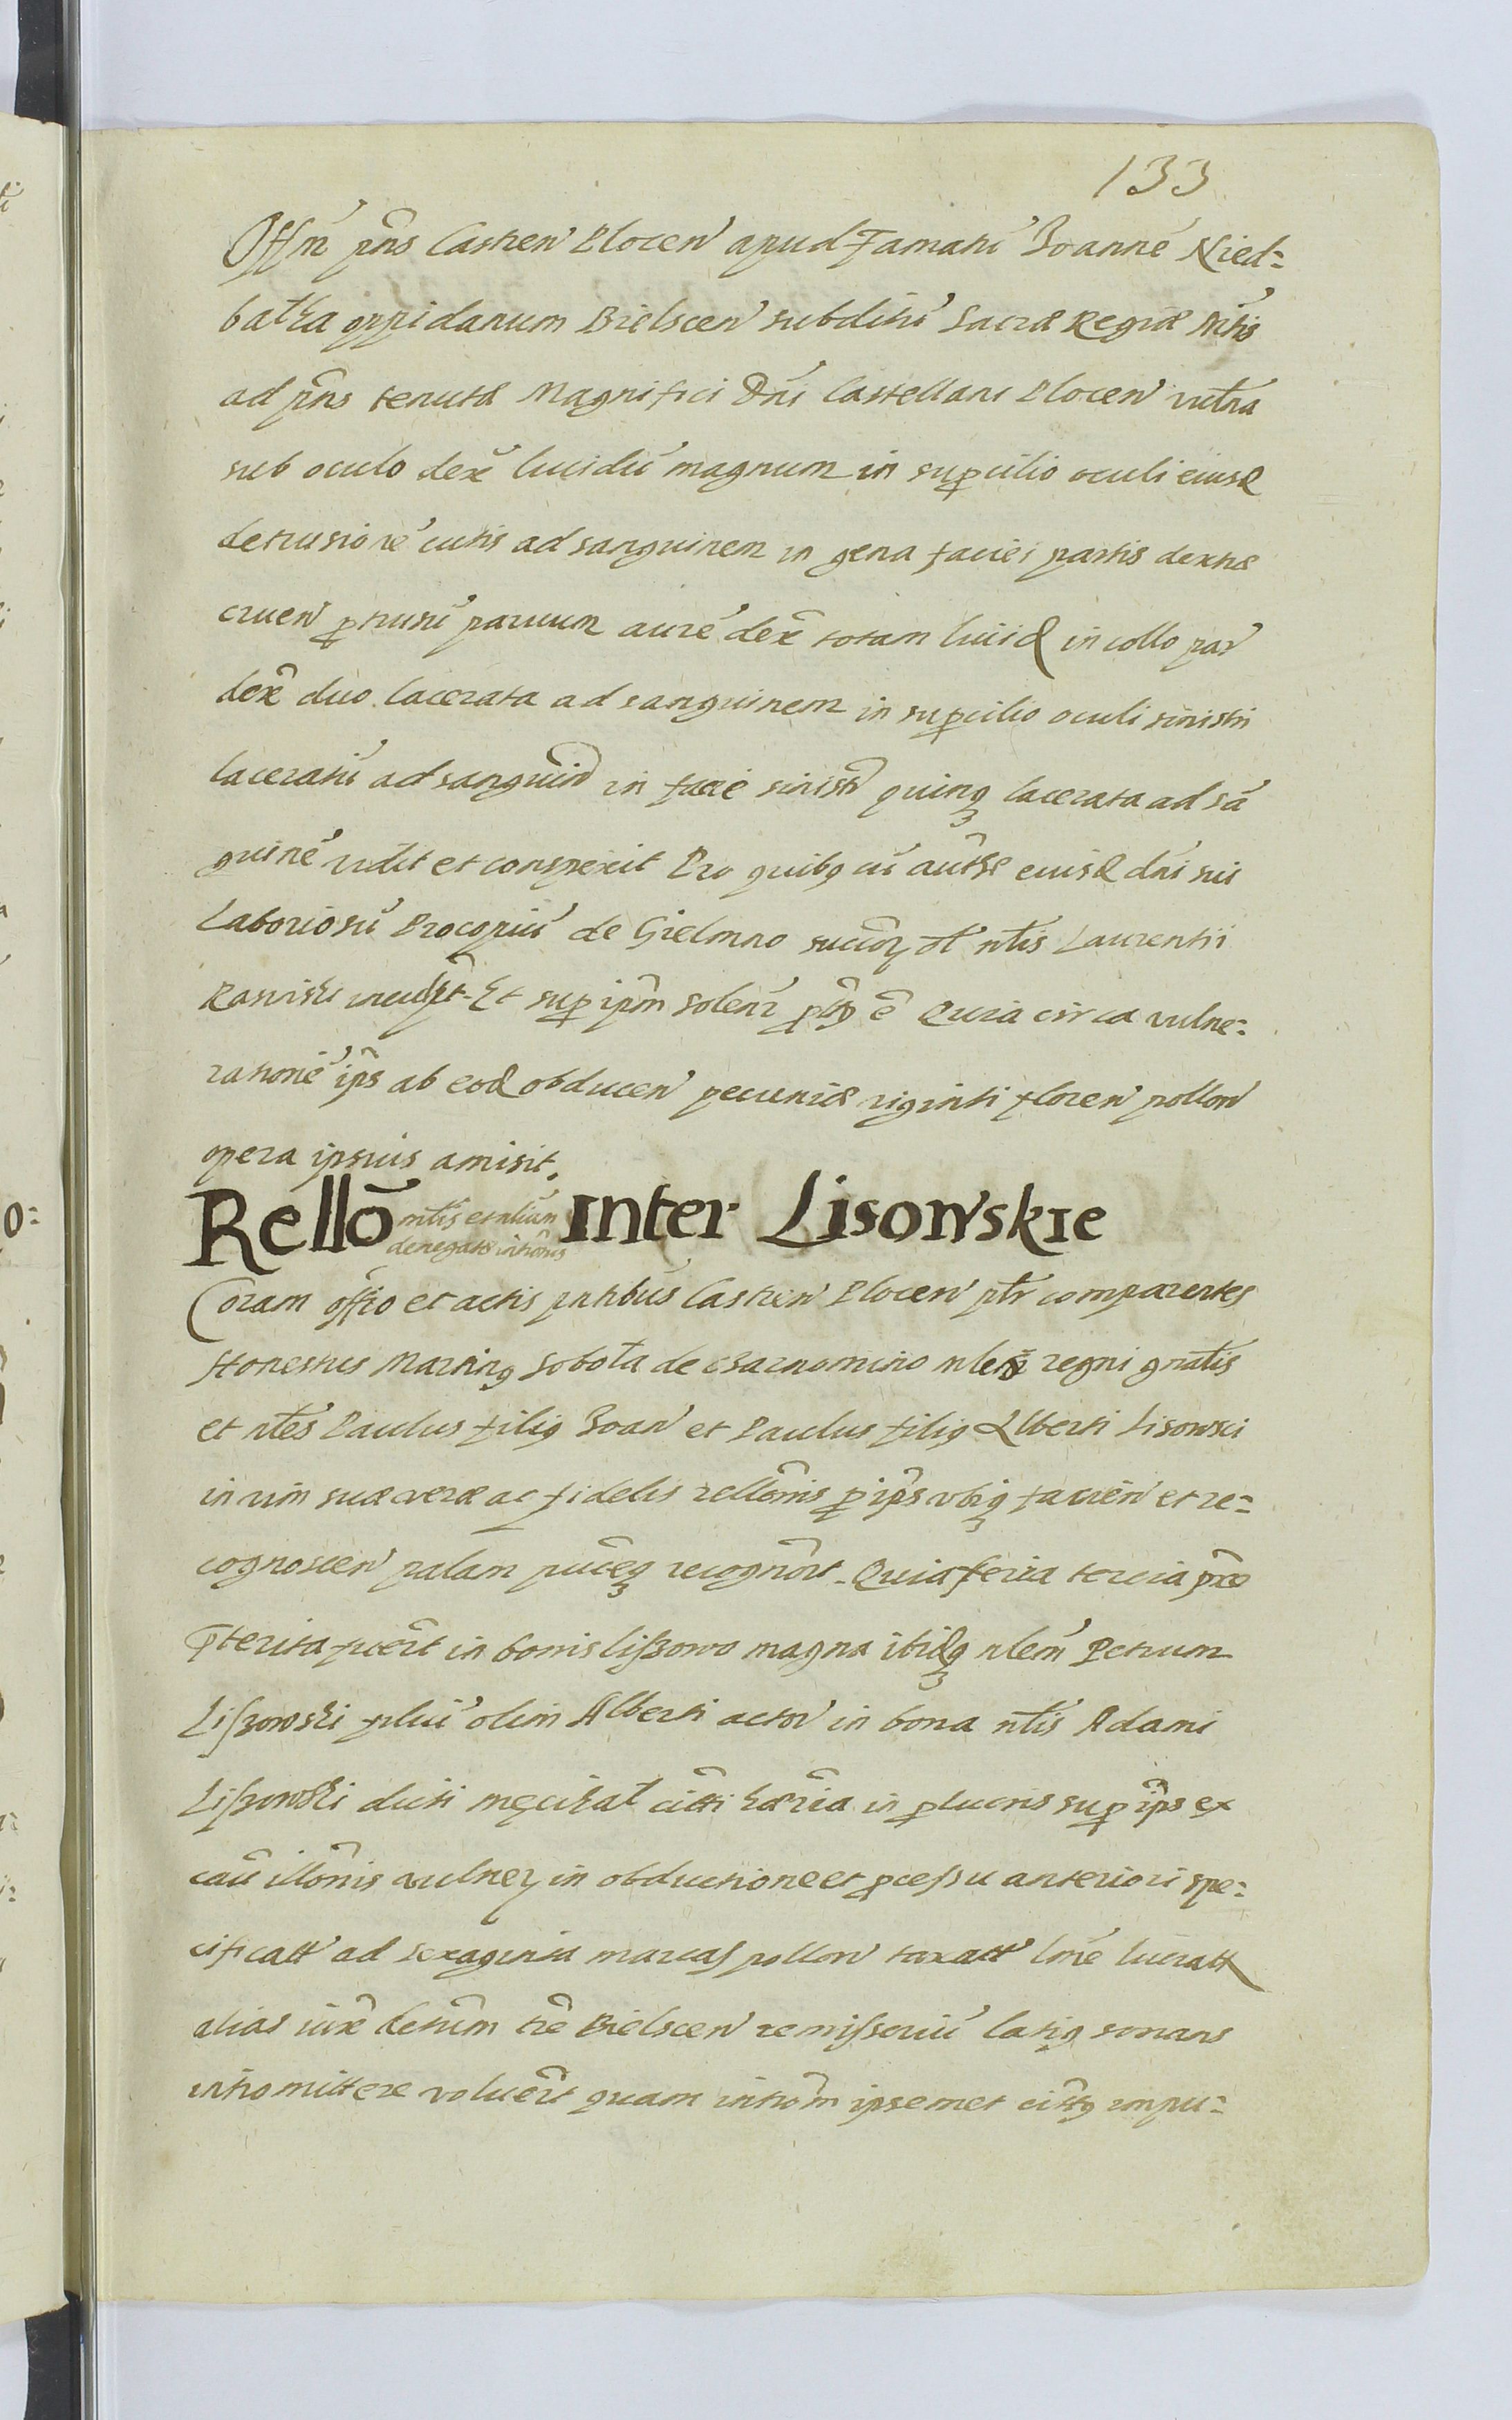 133
Offm̃ pñs Castren Plocen apud Famatũ Joannẽ Nied=
batka oppidanum Bielscen subditũ Sacræ Regiæ Mtis
ad pñs tenutæ Magnifici Dni Castellani Plocen vulnera
sub oculo dex̃ lividũ magnum in supcilio oculi eiusd
detrusionẽ cutis ad sanguinem in gena faciei partis dextræ
cruen ptusũ parvum aurẽ dex̃ totam livid in collo par
dex̃ duo lacerata ad sanguinem in supcilio oculi sinistri
laceratũ ad sanguin in facie sinistr quinq lacerata ad sã
guinẽ vidit et conspexit Pro quibq eiusd dni sui
Laboriosũ Procopiũ de Gielmno ntis Laurentii
Et sup ipm solenr ẽ Quia circa vulne=
rationẽ ips ab eod obducen pecuniæ viginti floren pollon
opera ipsius amisit.
Rellõ mtis et alium denegatæ intrõnis Inter Lisowskie
Coram offio et actis pntibus Castren Plocen ptr comparentes
Honestus Martinq Sobota de Czarnomino regni gnatis
et ntes Paulus filiq Joan et Paulus filiq Alberti Lisowsci
in vim suæ veræ ac fidelis rellõnis p ips vbiq facien et re=
cognoscen palam puceq recognort. Quia feria tercia præ
terita fuert in bonis Lissowo magna ibidq nlem Petrum
Lissowski filiũ olim Alberti actor in bona ntis Adami
Lissowski dicti męcikal in p lucris sup ips ex
cau illõnis vulner in obductione et pcessu anteriori spe=
cificatt ad sexaginta marcas pollon taxatt lucratt
alias iure bielscen latiq sonans
intromittere voluert quam introm ipsemet impu=